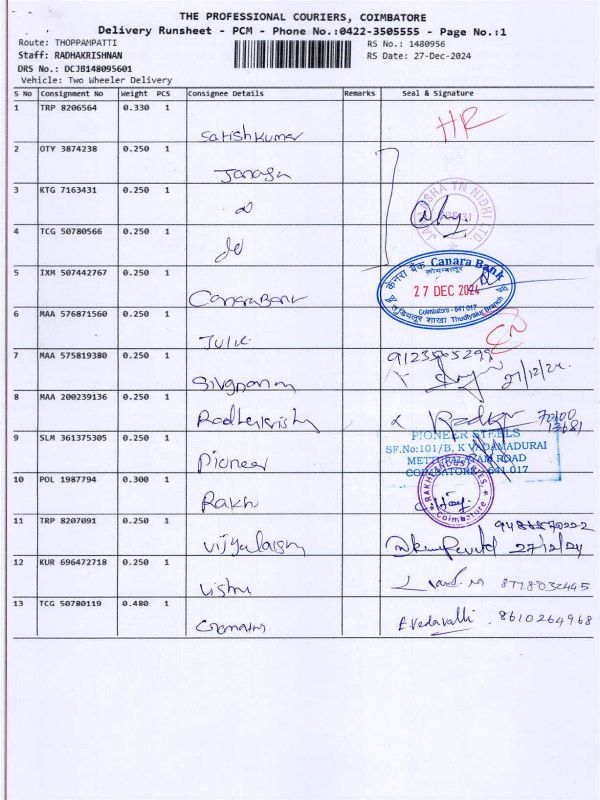 THE PROFESSIONAL COURIERS, COIMBATORE
Delivery Runsheet - PCM - Phone No.:0422-3505555 - Page No.:1
Route: THOPPAMPATTI RS No.: 1480956
Staff: RADHAKRISHNAN RS Date: 27-Dec-2024
DRS No.: DCJB148095601
Vehicle: Two Wheeler Delivery
S No Consignment No Weight PCS Consignee Details Remarks Seal & Signature
1 TRP 8206564 0.330 1
Satishkumar HR
2 OTY 3874238 0.250 1
3 KTG 7163431 0.250 1
TN NIDHI LTD
4 TCG 50780566 0.250 1
do
5 IXM 507442767 0.250 1
Canara Bank
केनरा बैंक Canara Bank
कोयम्बत्तूर
27 DEC 2024
Coimbatore - 641 017
शाखा Thudiyalur Branch
6 MAA 576871560 0.250 1
7 MAA 575819380 0.250 1
27/12/24
8 MAA 200239136 0.250 1
Radhakrishn
9 SLM 361375305 0.250 1
Pioneer
PIONEER STEELS
SF.No:101/B, K VADAMADURAI
METTUPALAYAM ROAD
COIMBATORE - 641 017
10 POL 1987794 0.300 1
Rakhi
RAKHI INDUSTRIES
Coimbatore
11 TRP 8207091 0.250 1
27/12/24
12 KUR 696472718 0.250 1
Vishnu 8778032445
13 TCG 50780119 0.480 1
Gomathi E.vedavalli 8610264968